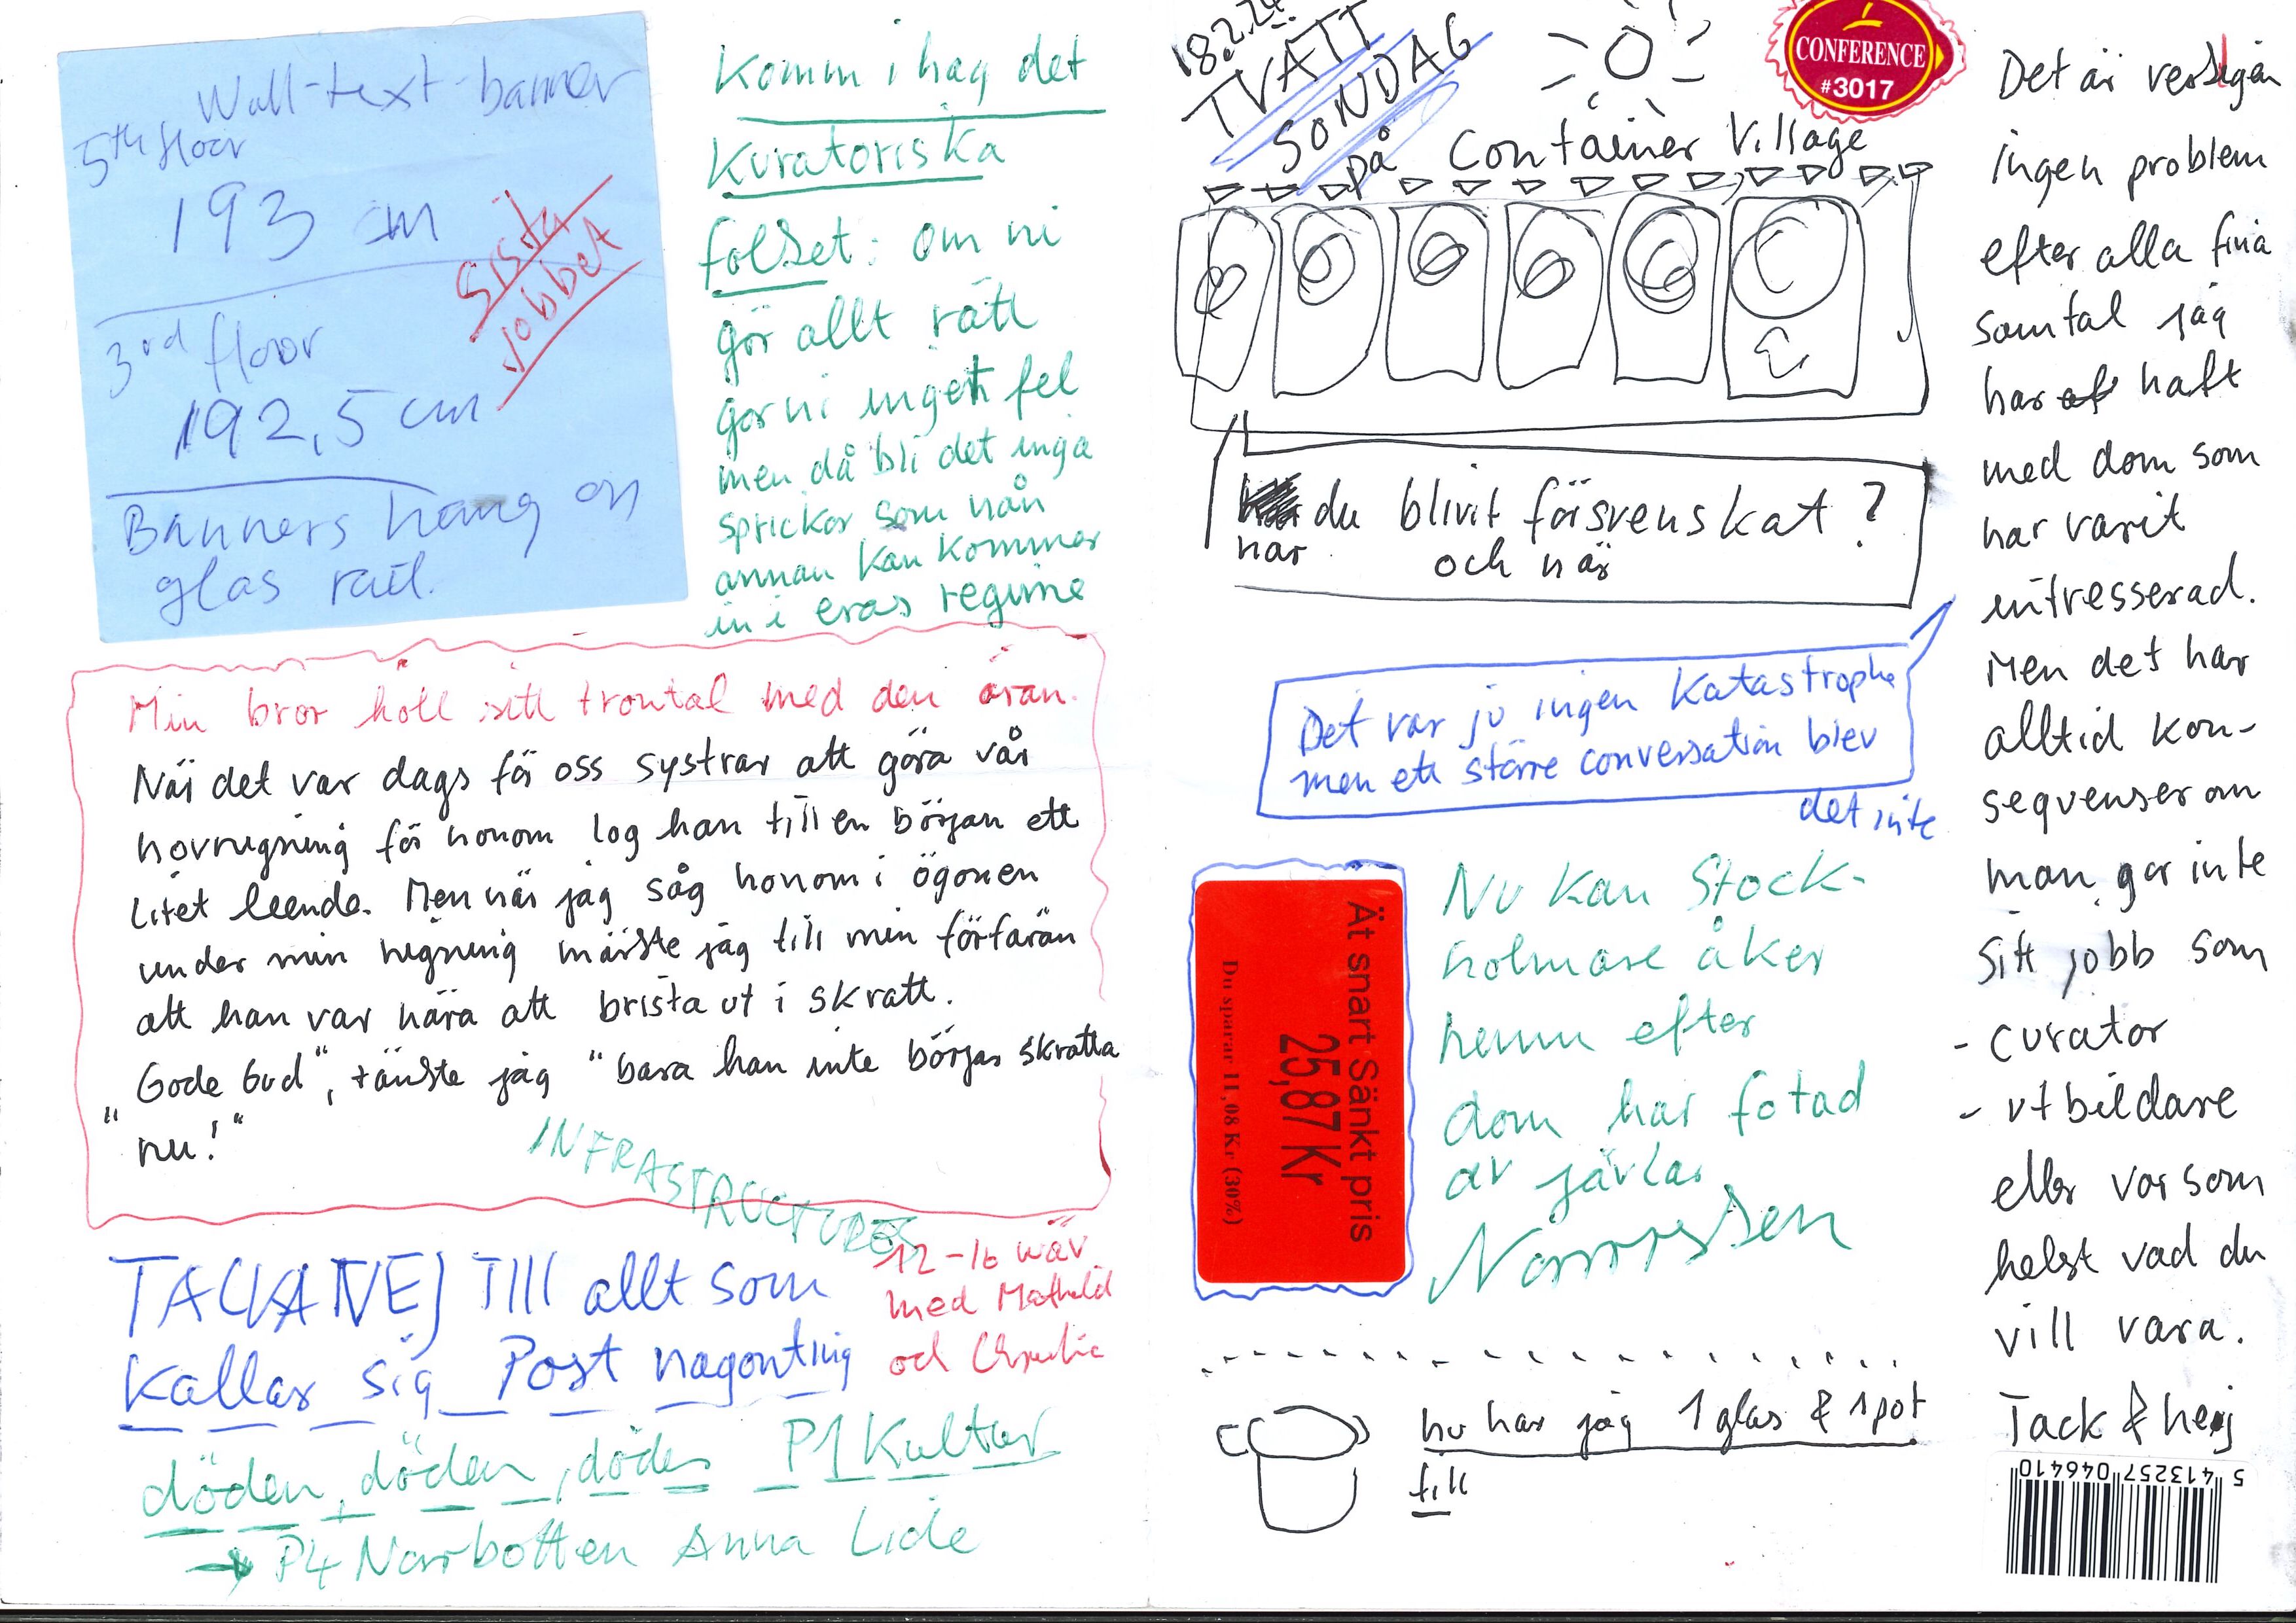 Wall-text-banner
5th floor
193 cm
3rd floor
192,5 cm
Banners hang on
glas rail.
Sista
jobbet
Komm i hag det
Kuratoriska
folket: om ni
gör allt rätt
gör ni ingen fel
men då bli det inga
sprickor som nån
annan kan kommer
in i eras regime
Min bror höll sitt trontal med den äran.
När det var dags för oss systrar att göra vår
hovnigning för honom log han till en början ett
litet leende. Men när jag såg honom i ögonen
under min nigning märkte jag till min förfäran
att han var nära att brista ut i skratt.
"Gode Gud", tänkte jag "bara han inte börjar skratta
nu!"
INFRASTRUCTURES
TACKA NEJ Till allt som
kallar sig Post nagonting
12-16 wäv
med Mathild
och
döden, döden, döden P1 Kultur
→ P4 Norrbotten Anna Lide
18.2.24
TVÄTT
SÖNDAG
på Container Village
CONFERENCE
#3017
har du blivit försvenskat?
och när
Det var jo ingen Katastrophe
men ett större conversation blev
det inte
Ät snart Sänkt pris
25,87 Kr
Du sparar 11,08 Kr (30%)
Nu kan Stock-
holmare åker
hemm efter
dom har fotad
av jävlar
Norrsken
nu har jag 1 glas & 1 pot
till
Det är verkligen
ingen problem
efter alla fina
samtal jag
har haft
med dom som
har varit
intresserad.
Men det har
alltid kon-
sequenser om
man gor inte
sitt jobb som
- curator
- utbildare
eller var som
helst vad du
vill vara.
Tack & hej
5 413257 046410